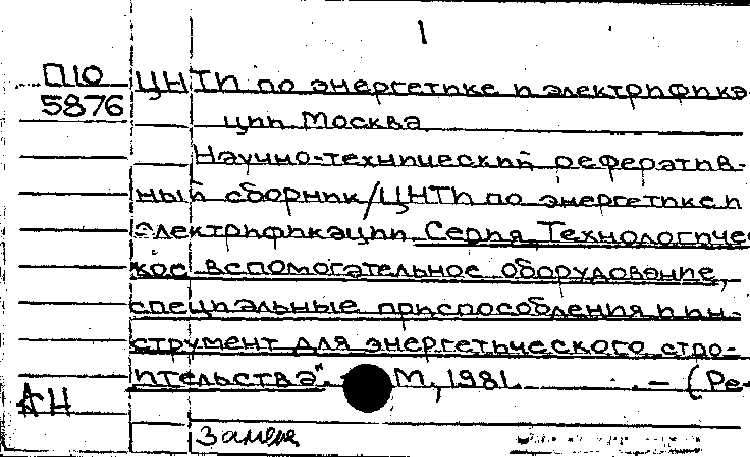 1
П10
5876
ЦНТИ по энергетике и электрифика
ции. Москва
Научно-технический рефератив-
ный сборник/ЦНТИ по энергетике и
электрификации. Серия „Технологичес
кое вспомогательное оборудование,
специальные приспособления и ин-
струмент для энергетического стро-
ительства". - М, 1981. - (Ре-
АН
Замена